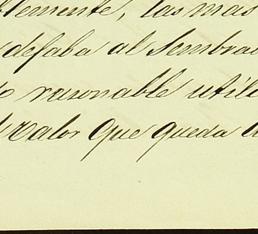 llemente, las mas
defaba al Sembrad
o rasonable utili
l valor que queda a